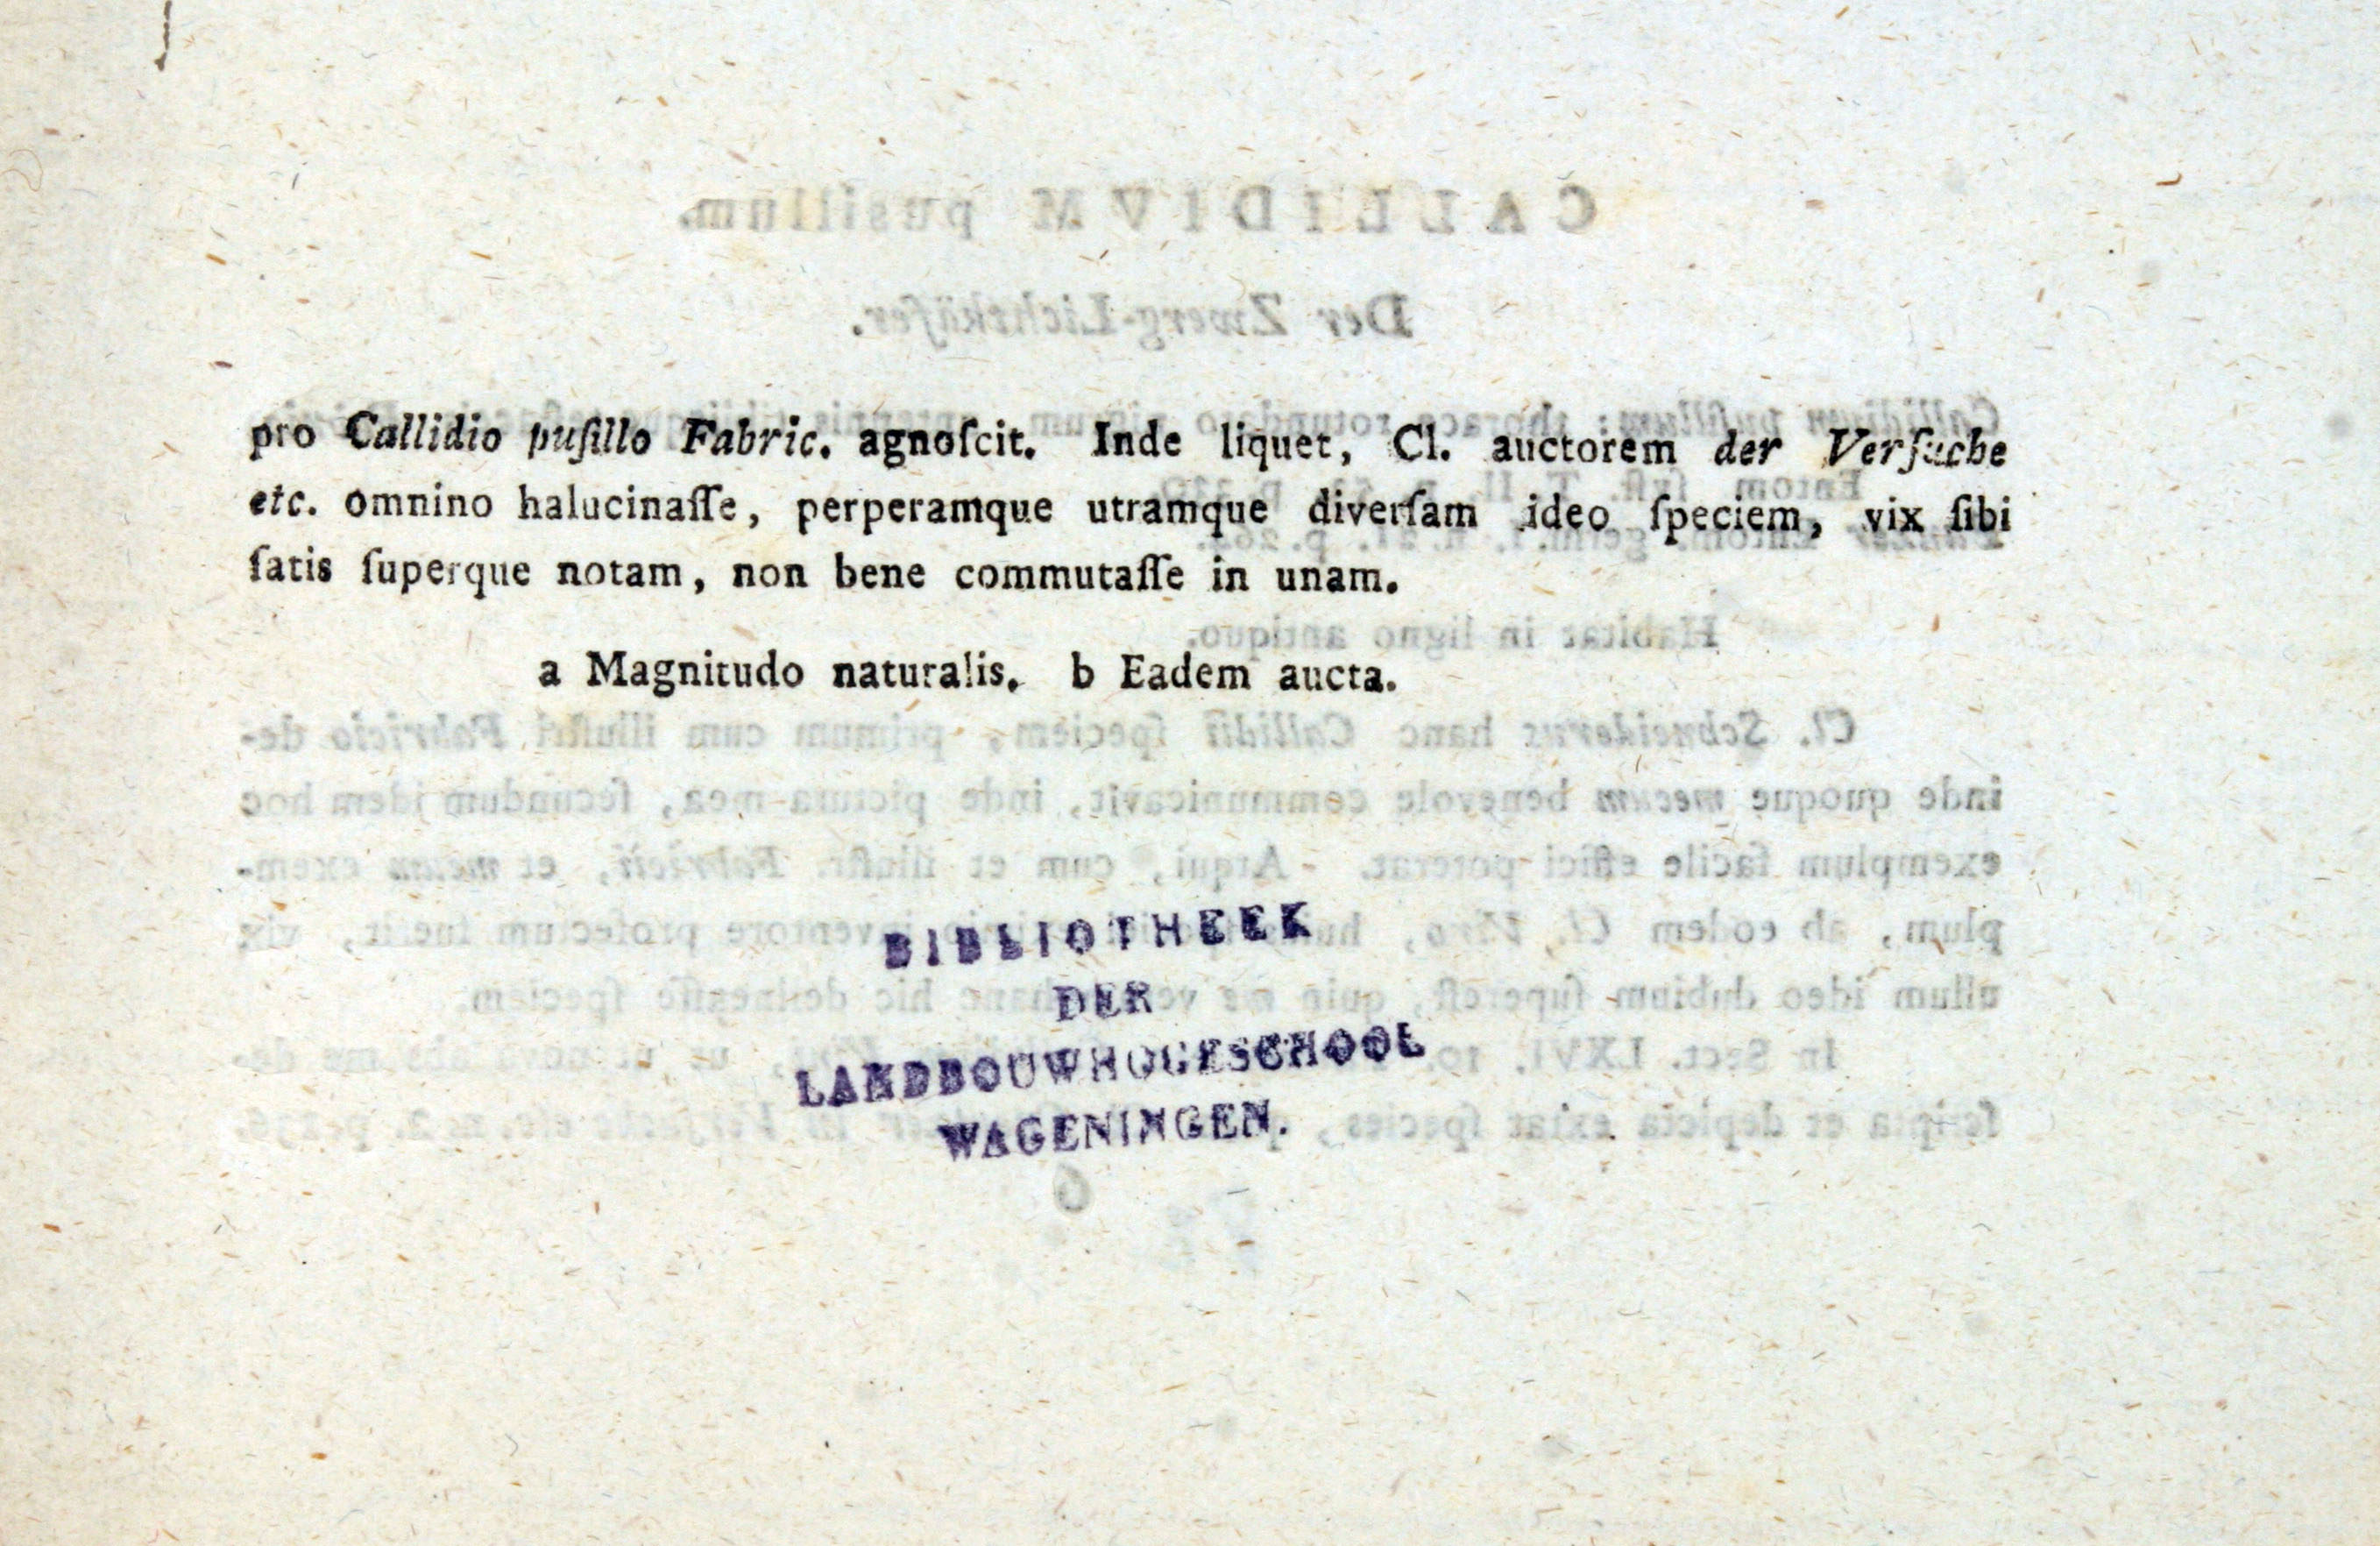 pro Callidio puſillo Fabric. agnoſcit. Inde liquet, Cl. auctorem der Verſuche
etc. omnino halucinaſſe, perperamque utramque diverſam ideo ſpeciem, vix ſibi
ſatis ſuperque notam, non bene commutaſſe in unam.
a Magnitudo naturalis. b Eadem aucta.
BIBLIOTHEEK
DER
LANDBOUWHOGESCHOOL
WAGENINGEN.